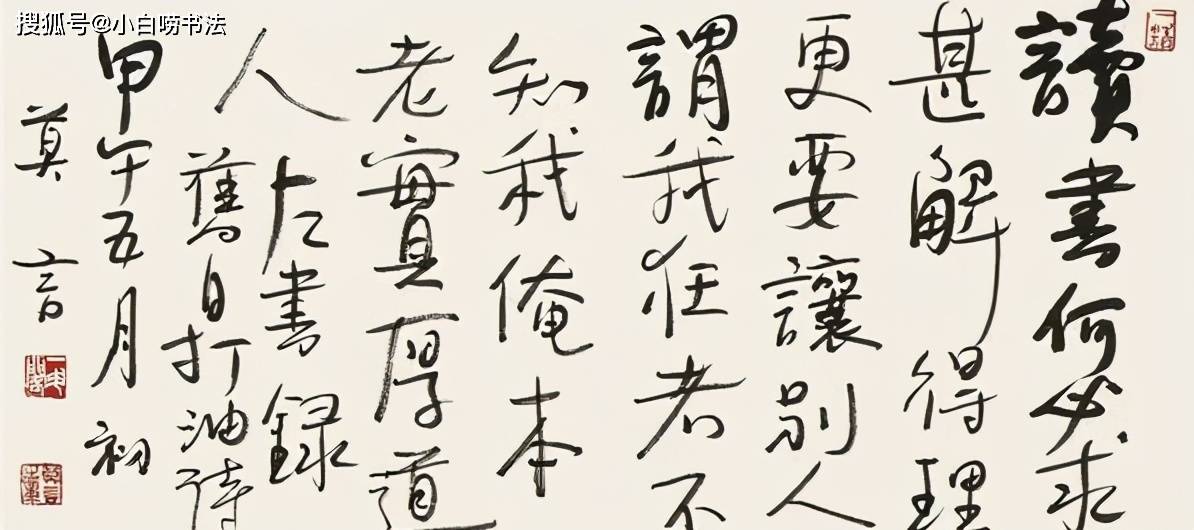 搜狐号@小白唠书法
讀書何必求
甚解得理
更要讓別人
謂我狂者不
知我俺本
老實厚道
人
左書錄
舊日打油詩
甲午五月初
莫言